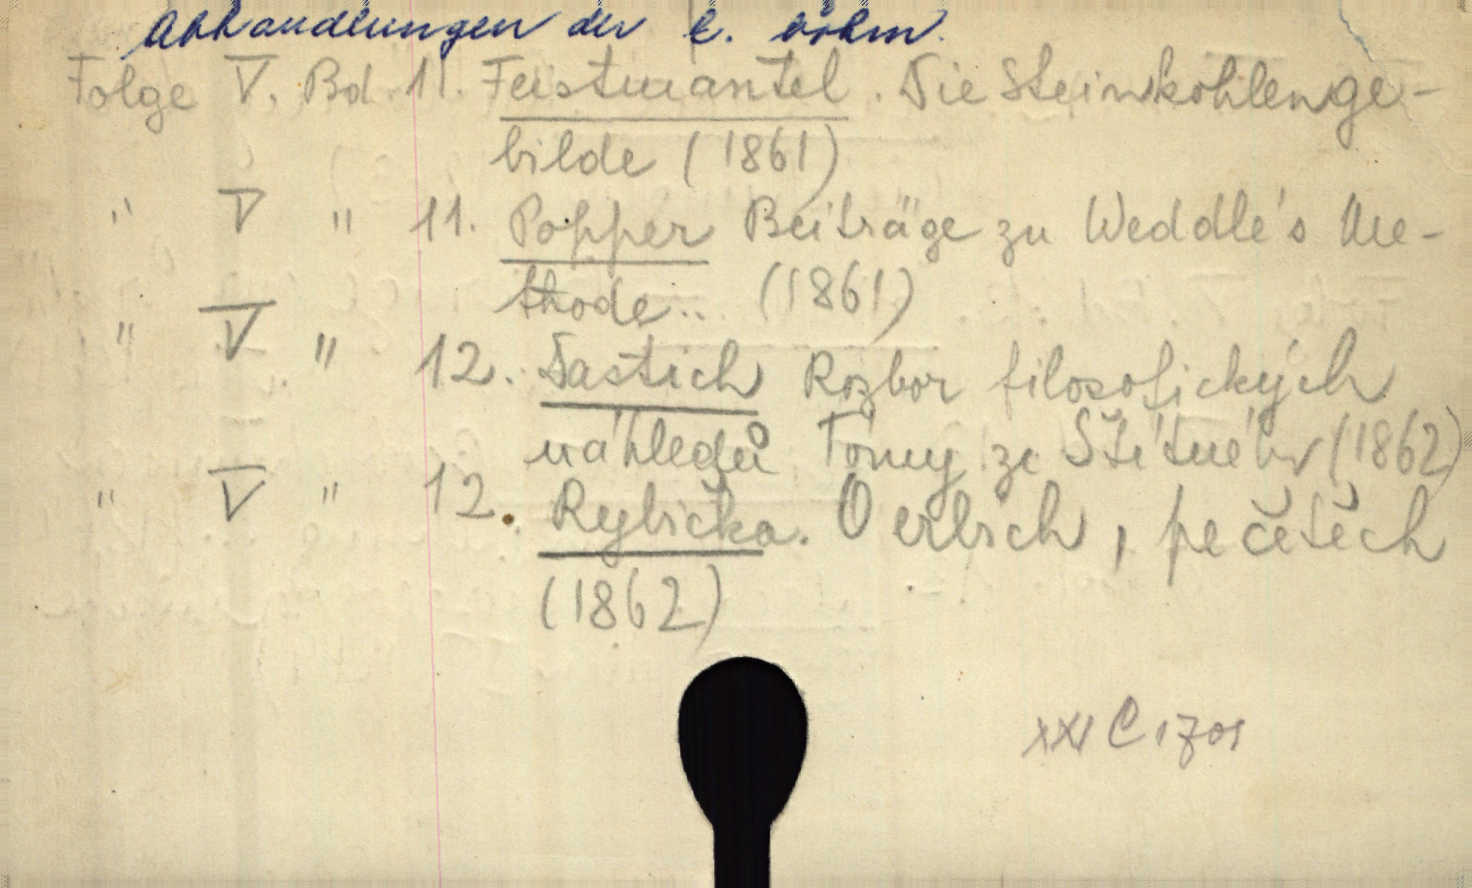 Abhandlungen der k. böhm.
Folge V. Bd. 11. Feistmantel. Die Steinkohlenge-
bilde (1861)
" V " 11. Popper Beiträge zu Weddle's Me-
thode.. (1861)
" V " 12. Dastich Rozbor filosofických
náhledů Tómy ze Štítného (1862)
" V " 12. Rybička. O erbích, pečetěch
(1862)
XXI C 1701